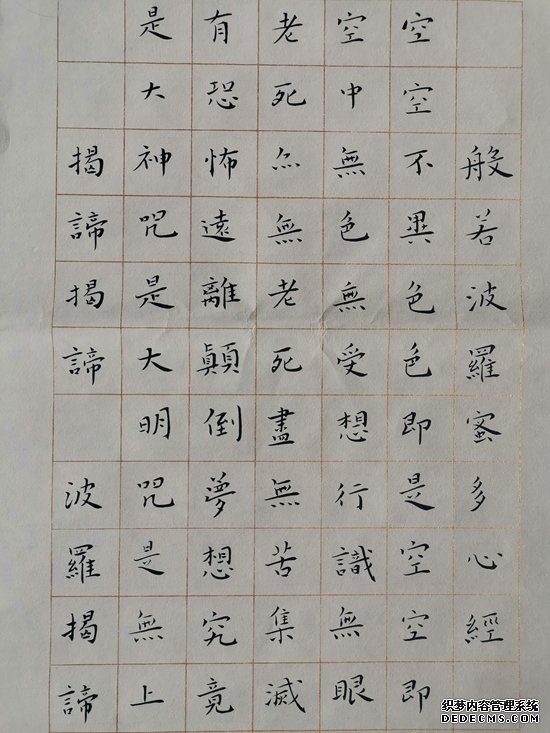 般若波羅蜜多心經
空空不異色色即是空空即
空中無色無受想行識無眼
老死亦無老死盡無苦集滅
有恐怖遠離顛倒夢想究竟
是大神咒是大明咒是無上
揭諦揭諦波羅揭諦
织梦内容管理系统
DEDECMS.COM